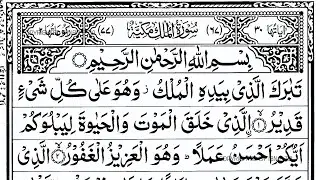 اٰيَاتُهَا ٣٠ (٦٧) سُوْرَةُ الْمُلْكِ مَكِّيَّةٌ (٧٧)
بِسْمِ اللّٰهِ الرَّحْمٰنِ الرَّحِيْمِ
تَبٰرَكَ الَّذِيْ بِيَدِهِ الْمُلْكُ ز وَهُوَ عَلٰى كُلِّ شَيْءٍ
قَدِيْرُ ۙ﴿١﴾ الَّذِيْ خَلَقَ الْمَوْتَ وَالْحَيٰوةَ لِيَبْلُوَكُمْ
اَيُّكُمْ اَحْسَنُ عَمَلًا ؕ وَهُوَ الْعَزِيْزُ الْغَفُوْرُ ۙ﴿٢﴾ الَّذِيْ